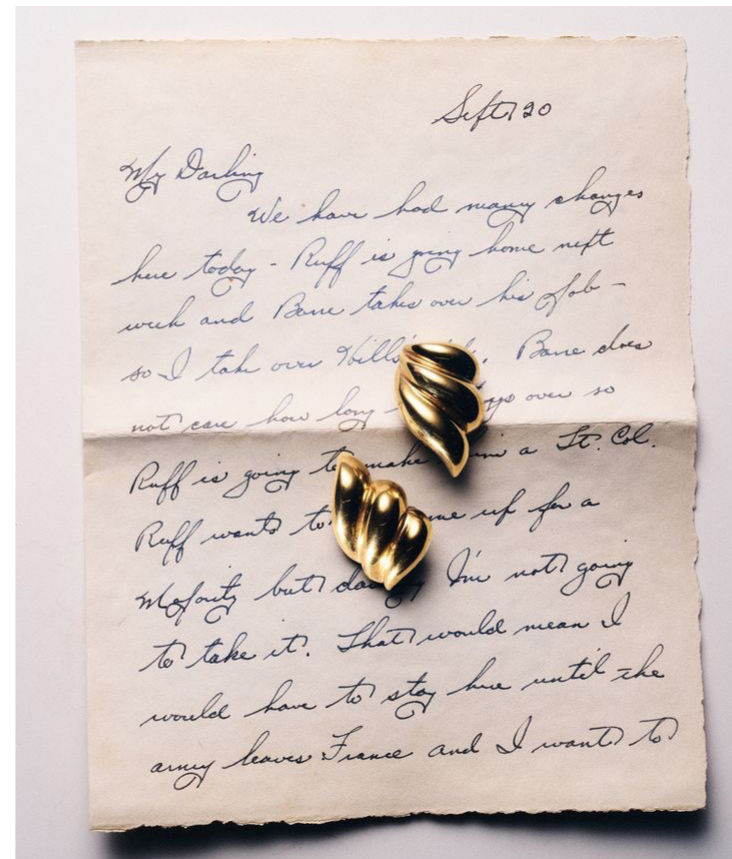 Sept 20
My Darling
We have had many changes
here today - Ruff is going home next
week and Bane takes over his job -
so I take over Bane does
not care how long over so
Ruff is going to make a Lt. Col.
Ruff wants to me up for a
Majority but I'm not going
to take it. That would mean I
would have to stay here until the
army leaves France and I want to